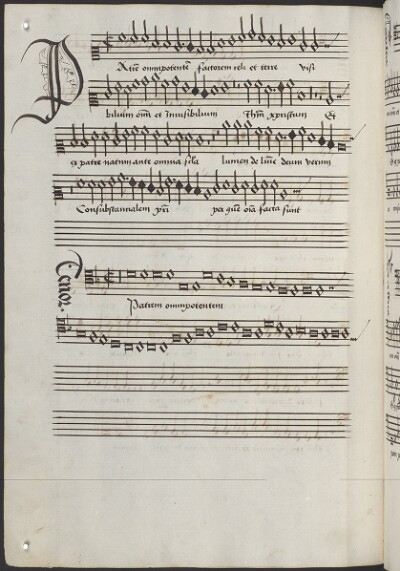 Patrem omnipotentem factorem celi et terre visi
bilium omnium et Inuisibilium Ihesum xpristum Et
ex patre natum ante omnia secula lumen de lumine deum verum
Consubstancialem patri per quem omnia facta sunt
Tenor.
Patrem omnipotentem